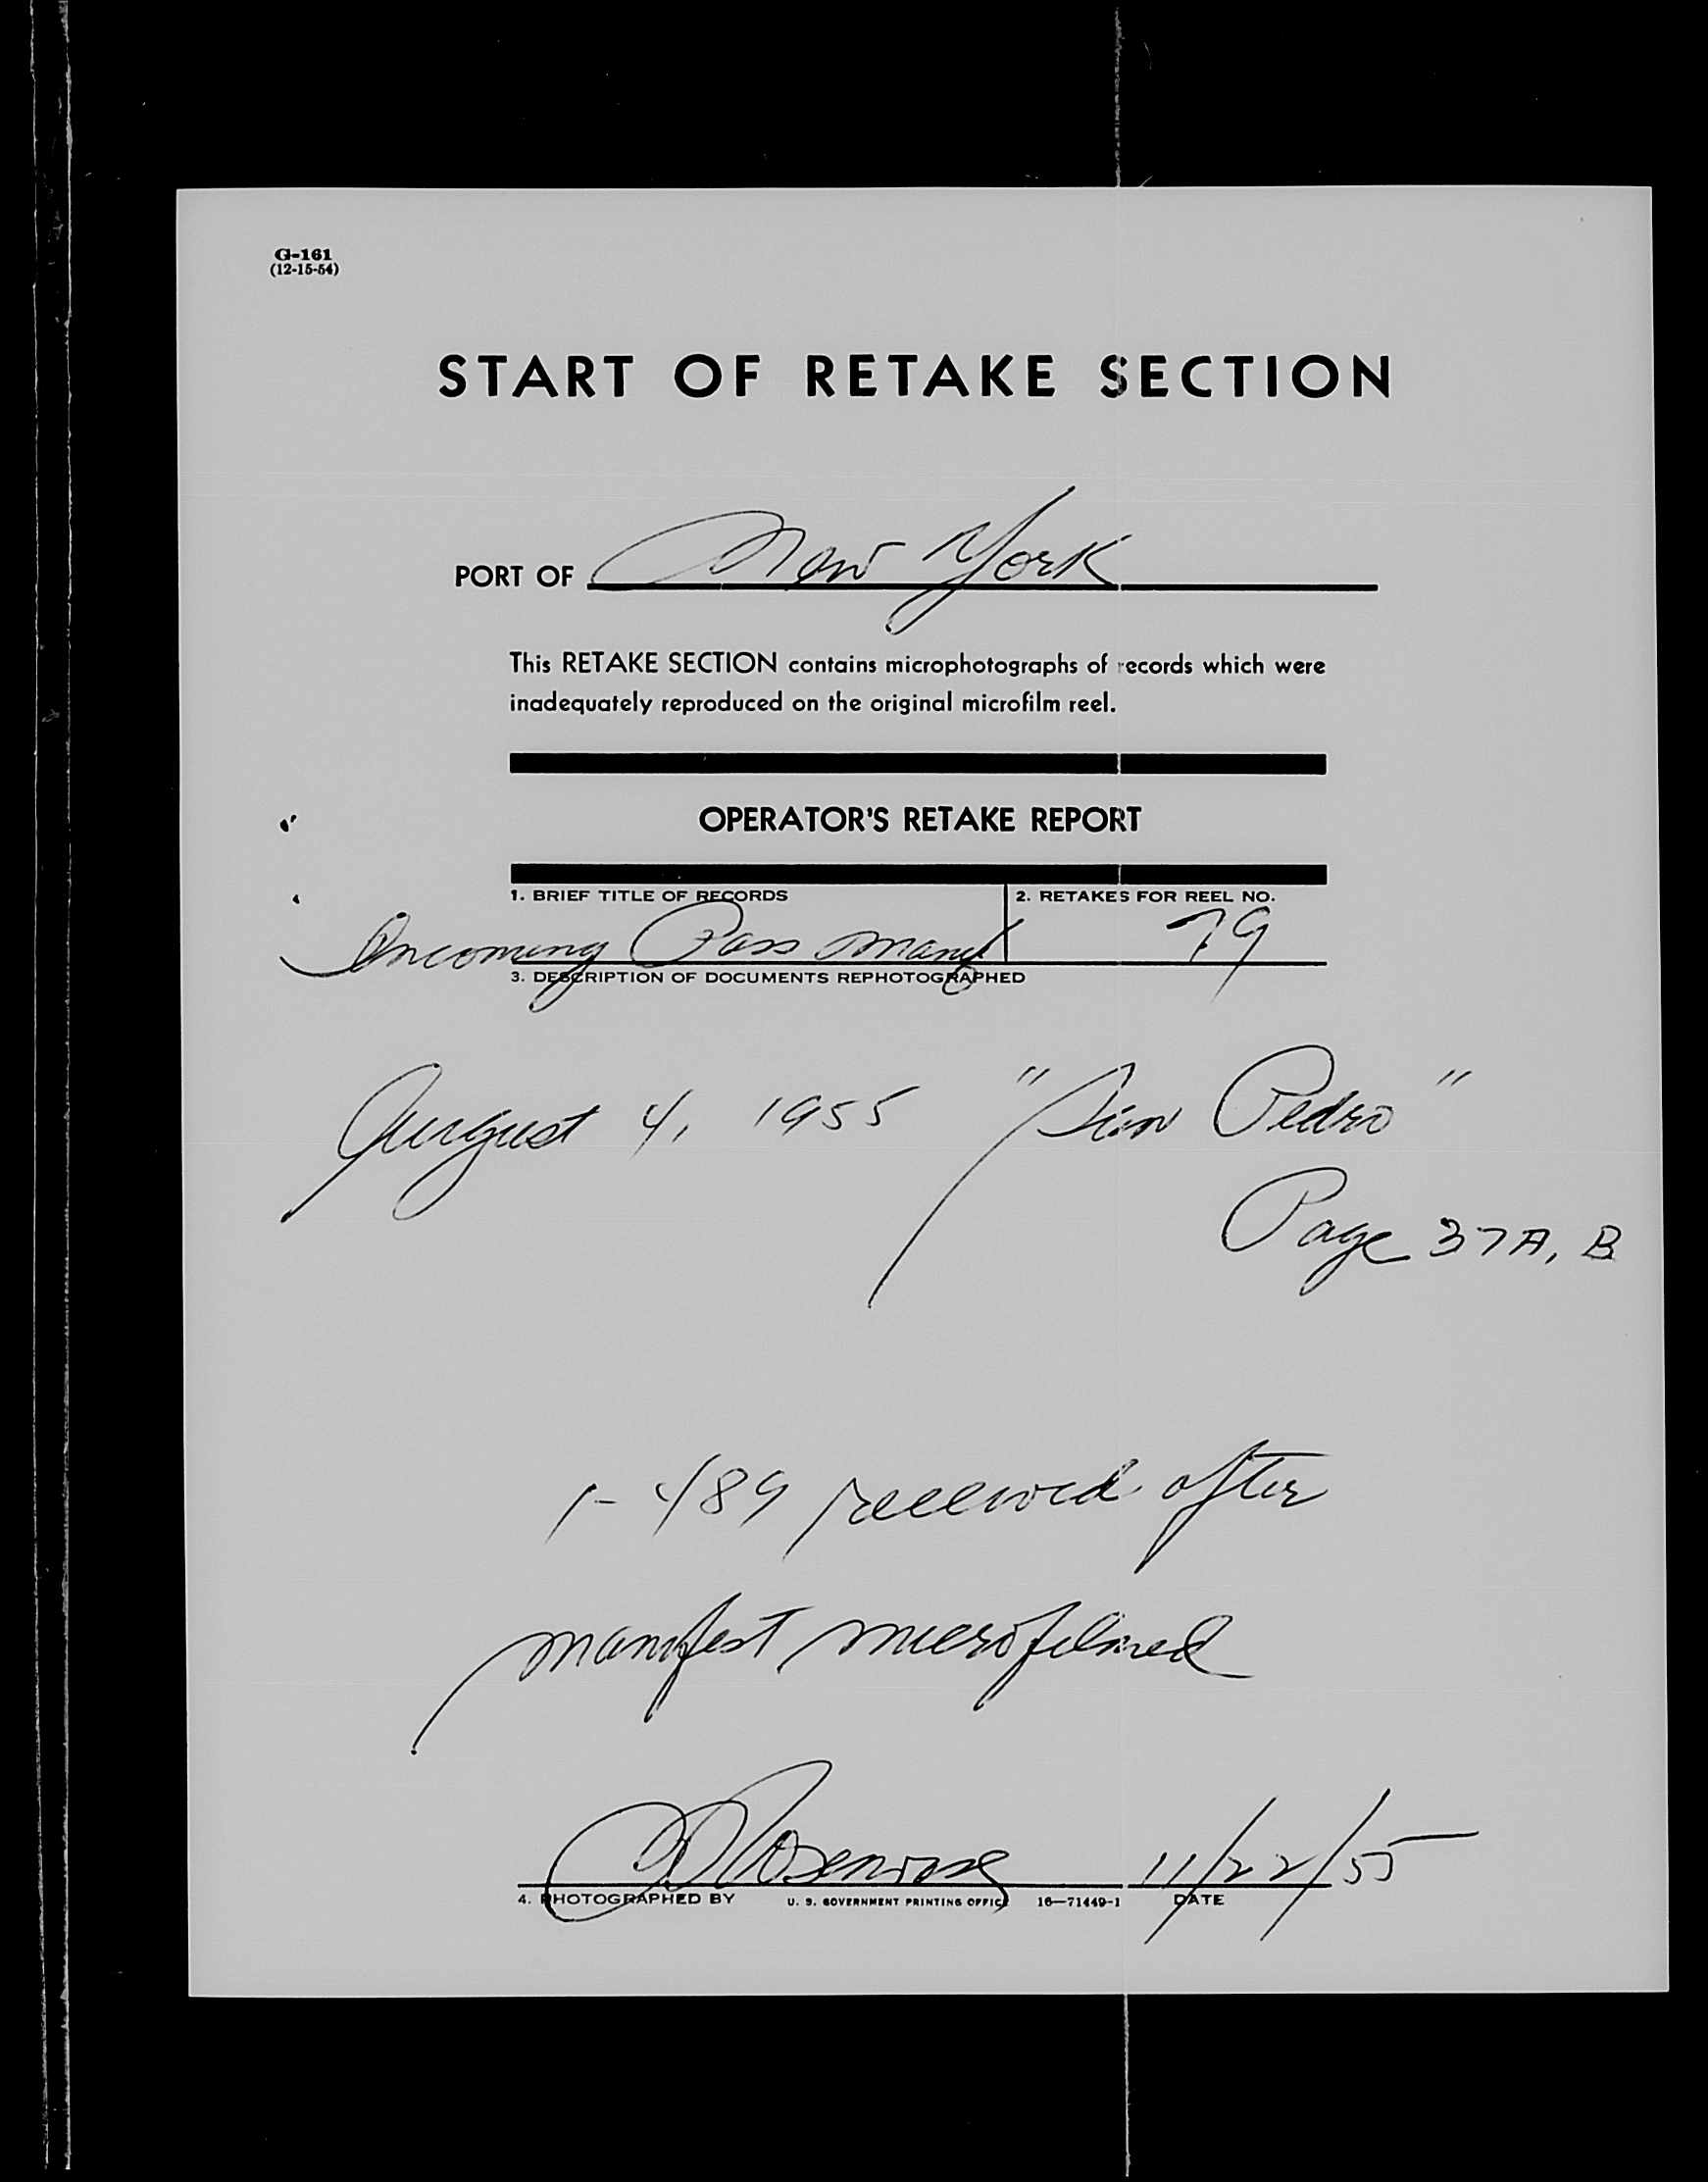 G-161
(12-15-54)
START OF RETAKE SECTION
PORT OF New York
This RETAKE SECTION contains microphotographs of records which were
inadequately reproduced on the original microfilm reel.
OPERATOR'S RETAKE REPORT
1. BRIEF TITLE OF RECORDS 2. RETAKES FOR REEL NO.
Incoming Pass Manif 79
3. DESCRIPTION OF DOCUMENTS REPHOTOGRAPHED
August 4, 1955 "San Pedro"
Page 37A, B
1-489 received after
manifest microfilmed
11/22/55
4. PHOTOGRAPHED BY U. S. GOVERNMENT PRINTING OFFICE 16—71449-1 DATE